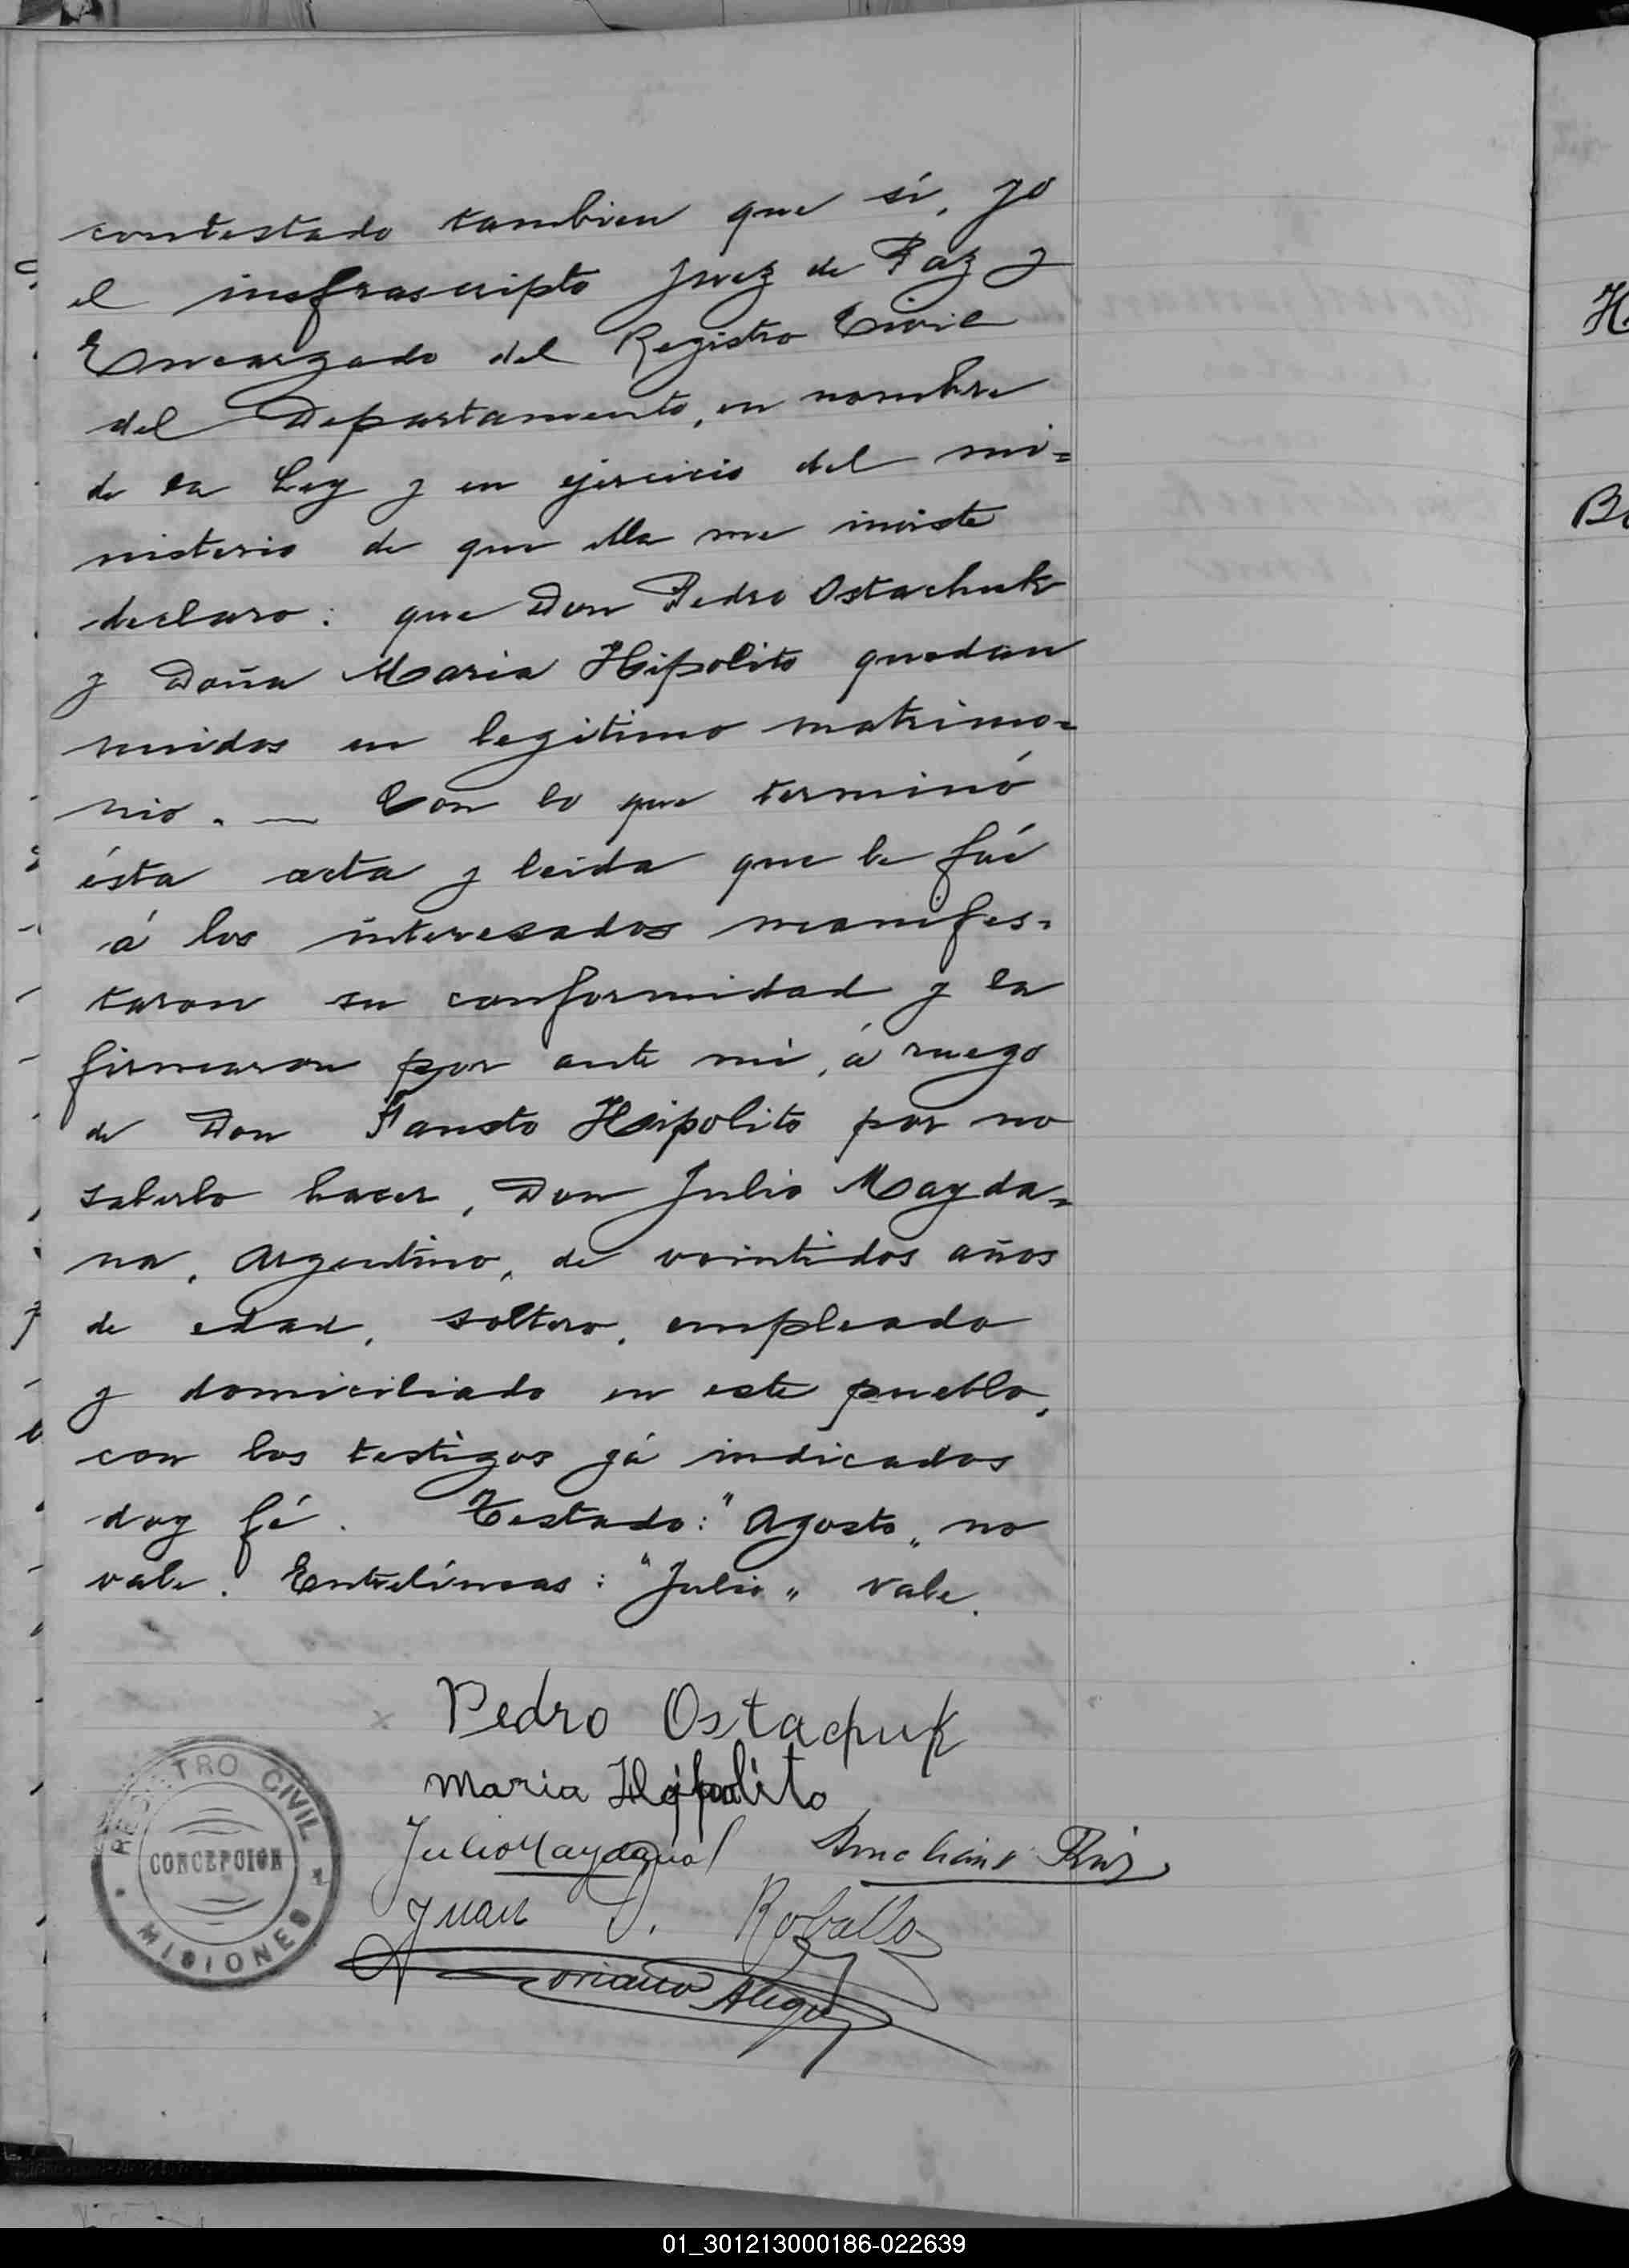 contestado tambien que sí, yo
el insfrascripto Juez de Paz y
Encargado del Registro Civil
del Departamento, en nombre
de la Ley y en ejercicio del mi=
nisterio de que ella me inviste
declaro: que Don Pedro Ostachuk
y Doña Maria Hipolito quedan
unidos en legitimo matrimo=
nio. — Con lo que terminó
ésta acta y leida que le fué
á los interesados manifes=
taron su conformidad y la
firmaron por ante mi, á ruego
de Don Fausto Hipolito por no
saberlo hacer, Don Julio Mayda=
na, Argentino, de veintidos años
de edad, soltero, empleado
y domiciliado en este pueblo,
con los testigos yá indicados
doy fé. Testado: "Agosto" no
vale. Entrelíneas: "Julio" vale.
Pedro Ostachuk
Maria Hipolito
Julio Maydana
Juan D. Roballo
REGISTRO CIVIL
CONCEPCION
MISIONES
H
B
01_301213000186-022639